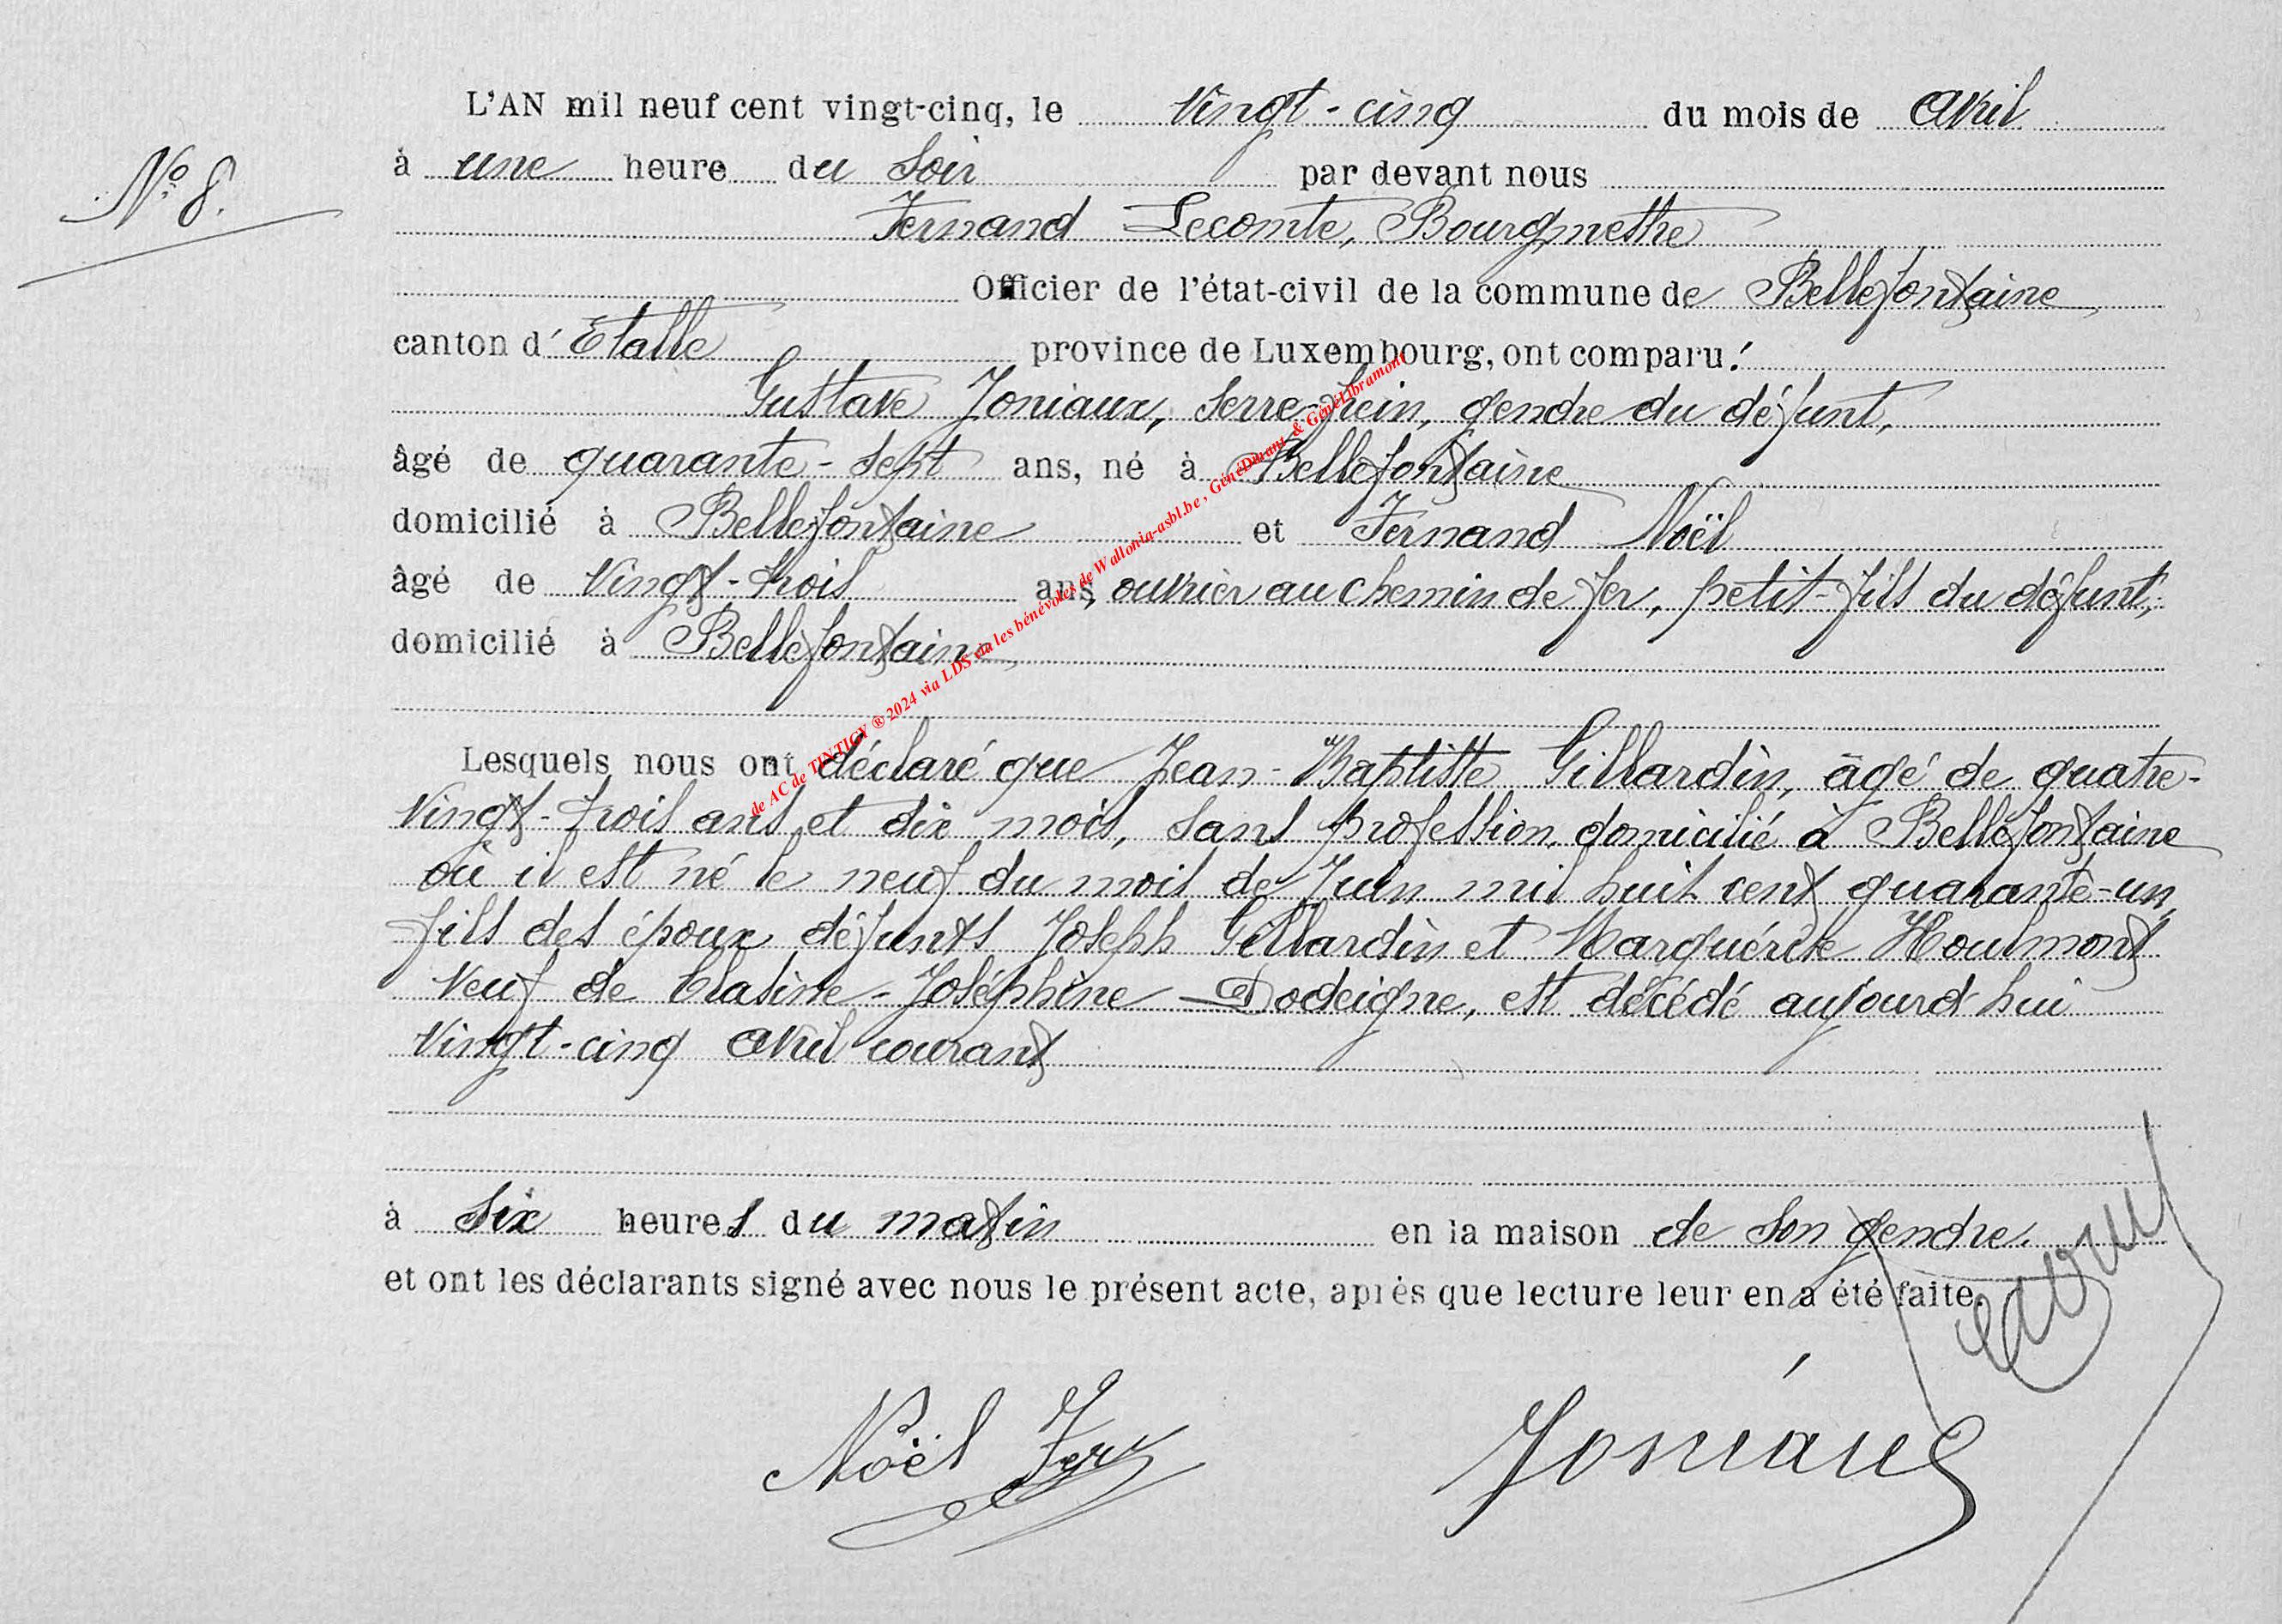 N° 8.
L'AN mil neuf cent vingt-cinq, le vingt-cinq du mois de avril
à une heure du soir par devant nous
Fernand Lecomte, Bourgmestre
Officier de l'état-civil de la commune de Bellefontaine
canton d'Etalle province de Luxembourg, ont comparu :
Gustave Joniaux, serre-frein, gendre du défunt,
âgé de quarante-sept ans, né à Bellefontaine
domicilié à Bellefontaine et Fernand Noël
âgé de vingt-trois ans, ouvrier au chemin de fer, petit-fils du défunt,
domicilié à Bellefontaine
Lesquels nous ont déclaré que Jean-Baptiste Gillardin, âgé de quatre-
vingt-trois ans et dix mois, sans profession, domicilié à Bellefontaine
où il est né le neuf du mois de Juin mil huit cent quarante-un,
fils des époux défunts Joseph Gillardin et Marguérite Houlmont
veuf de Elasine-Joséphine Dodeigne, est décédé aujourd'hui
vingt-cinq avril courant
à six heures du matin en la maison de son gendre.
et ont les déclarants signé avec nous le présent acte, après que lecture leur en a été faite.
Noël Fer
Joniaux
de AC de TINTIGY ® 2024 via LDS via les bénévoles de Wallonia-asbl.be, GénéDinant & GénéLibramont